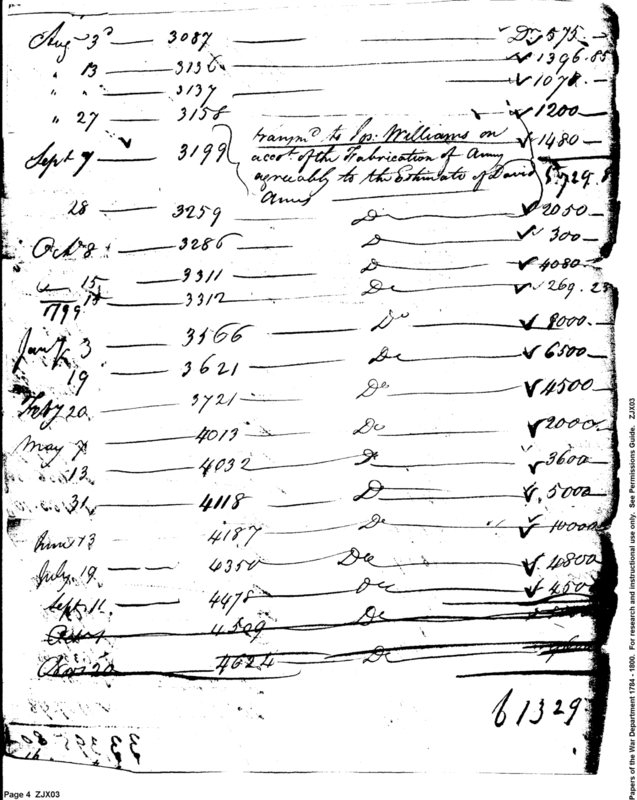 Augt 3d 3087 Do 575
" 13 3136 1396.85
" " 3137 1078
" 27 3158 1200
Sept 7 3199 transmd to Jos: Williams on accot of the Fabrication of Arms agreeably to the Estimate of David Ames 1480
5.729.8
28 3259 Do 2050
Octr 8 3286 Do 300
15 3311 Do 4080
18 3312 Do 269.23
1799
Jany 3 3566 Do 8000
19 3621 Do 6500
Feby 20 3721 Do 4500
May 7 4013 Do 2000
13 4032 Do 3600
31 4118 Do 5000
June 13 4187 Do 10000
July 19 4350 Do 4800
Sept 11 4478 Do 450
4509 Do
Nov 20 4624 Do
61329
Page 4 ZJX03
Papers of the War Department 1784 - 1800. For research and instructional use only. See Permissions Guide. ZJX03